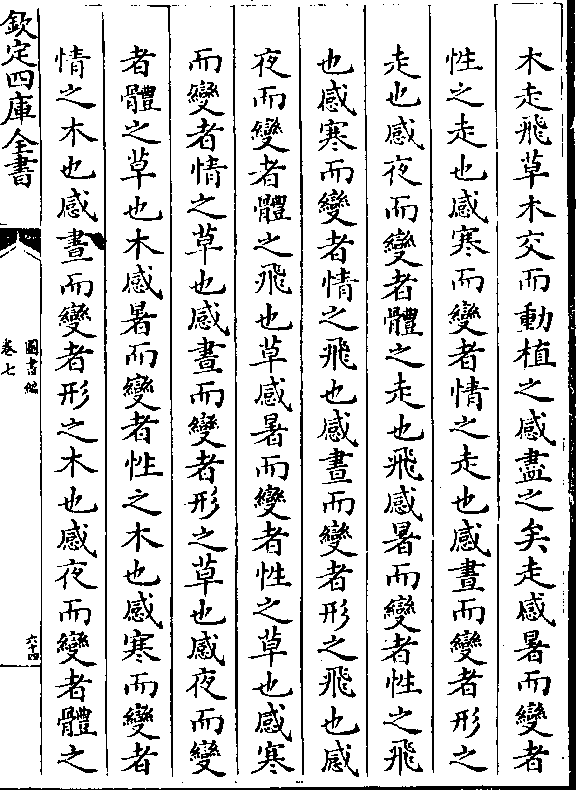 木走飛草木交而動植之感盡之矣走感暑而變者
性之走也感寒而變者情之走也感晝而變者形之
走也感夜而變者體之走也飛感暑而變者性之飛
也感寒而變者情之飛也感晝而變者形之飛也感
夜而變者體之飛也草感暑而變者性之草也感寒
而變者情之草也感晝而變者形之草也感夜而變
者體之草也木感暑而變者性之木也感寒而變者
情之木也感晝而變者形之木也感夜而變者體之
欽定四庫全書
圖書編
卷七
六十四